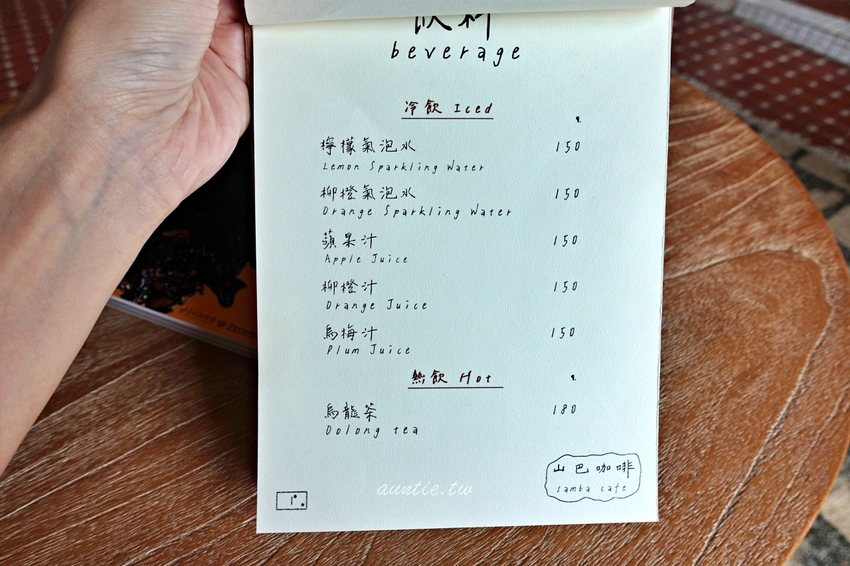 飲料
beverage
冷飲 Iced
檸檬氣泡水 150
Lemon Sparkling Water
柳橙氣泡水 150
Orange Sparkling Water
蘋果汁 150
Apple Juice
柳橙汁 150
Orange Juice
烏梅汁 150
Plum Juice
熱飲 Hot
烏龍茶 180
Oolong tea
山巴咖啡
Samba cafe
auntie.tw